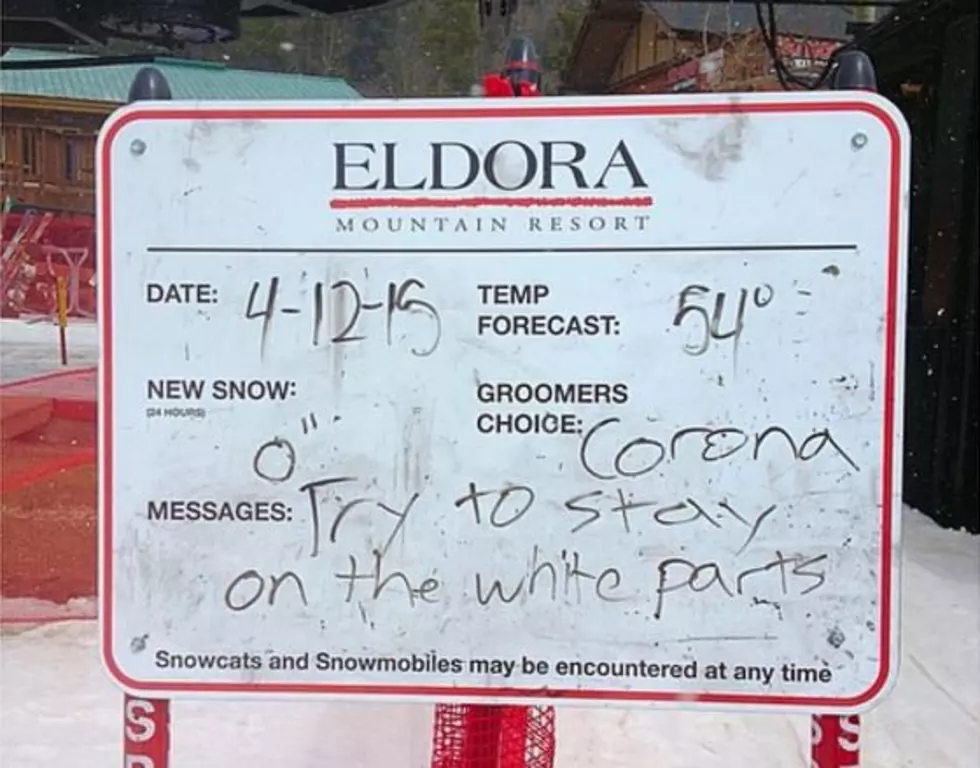 ELDORA
MOUNTAIN RESORT
DATE: 4-12-15
TEMP
FORECAST: 54°
NEW SNOW:
(24 HOURS)
0"
GROOMERS
CHOICE: Corona
MESSAGES: Try to stay
on the white parts
Snowcats and Snowmobiles may be encountered at any time
S
S S